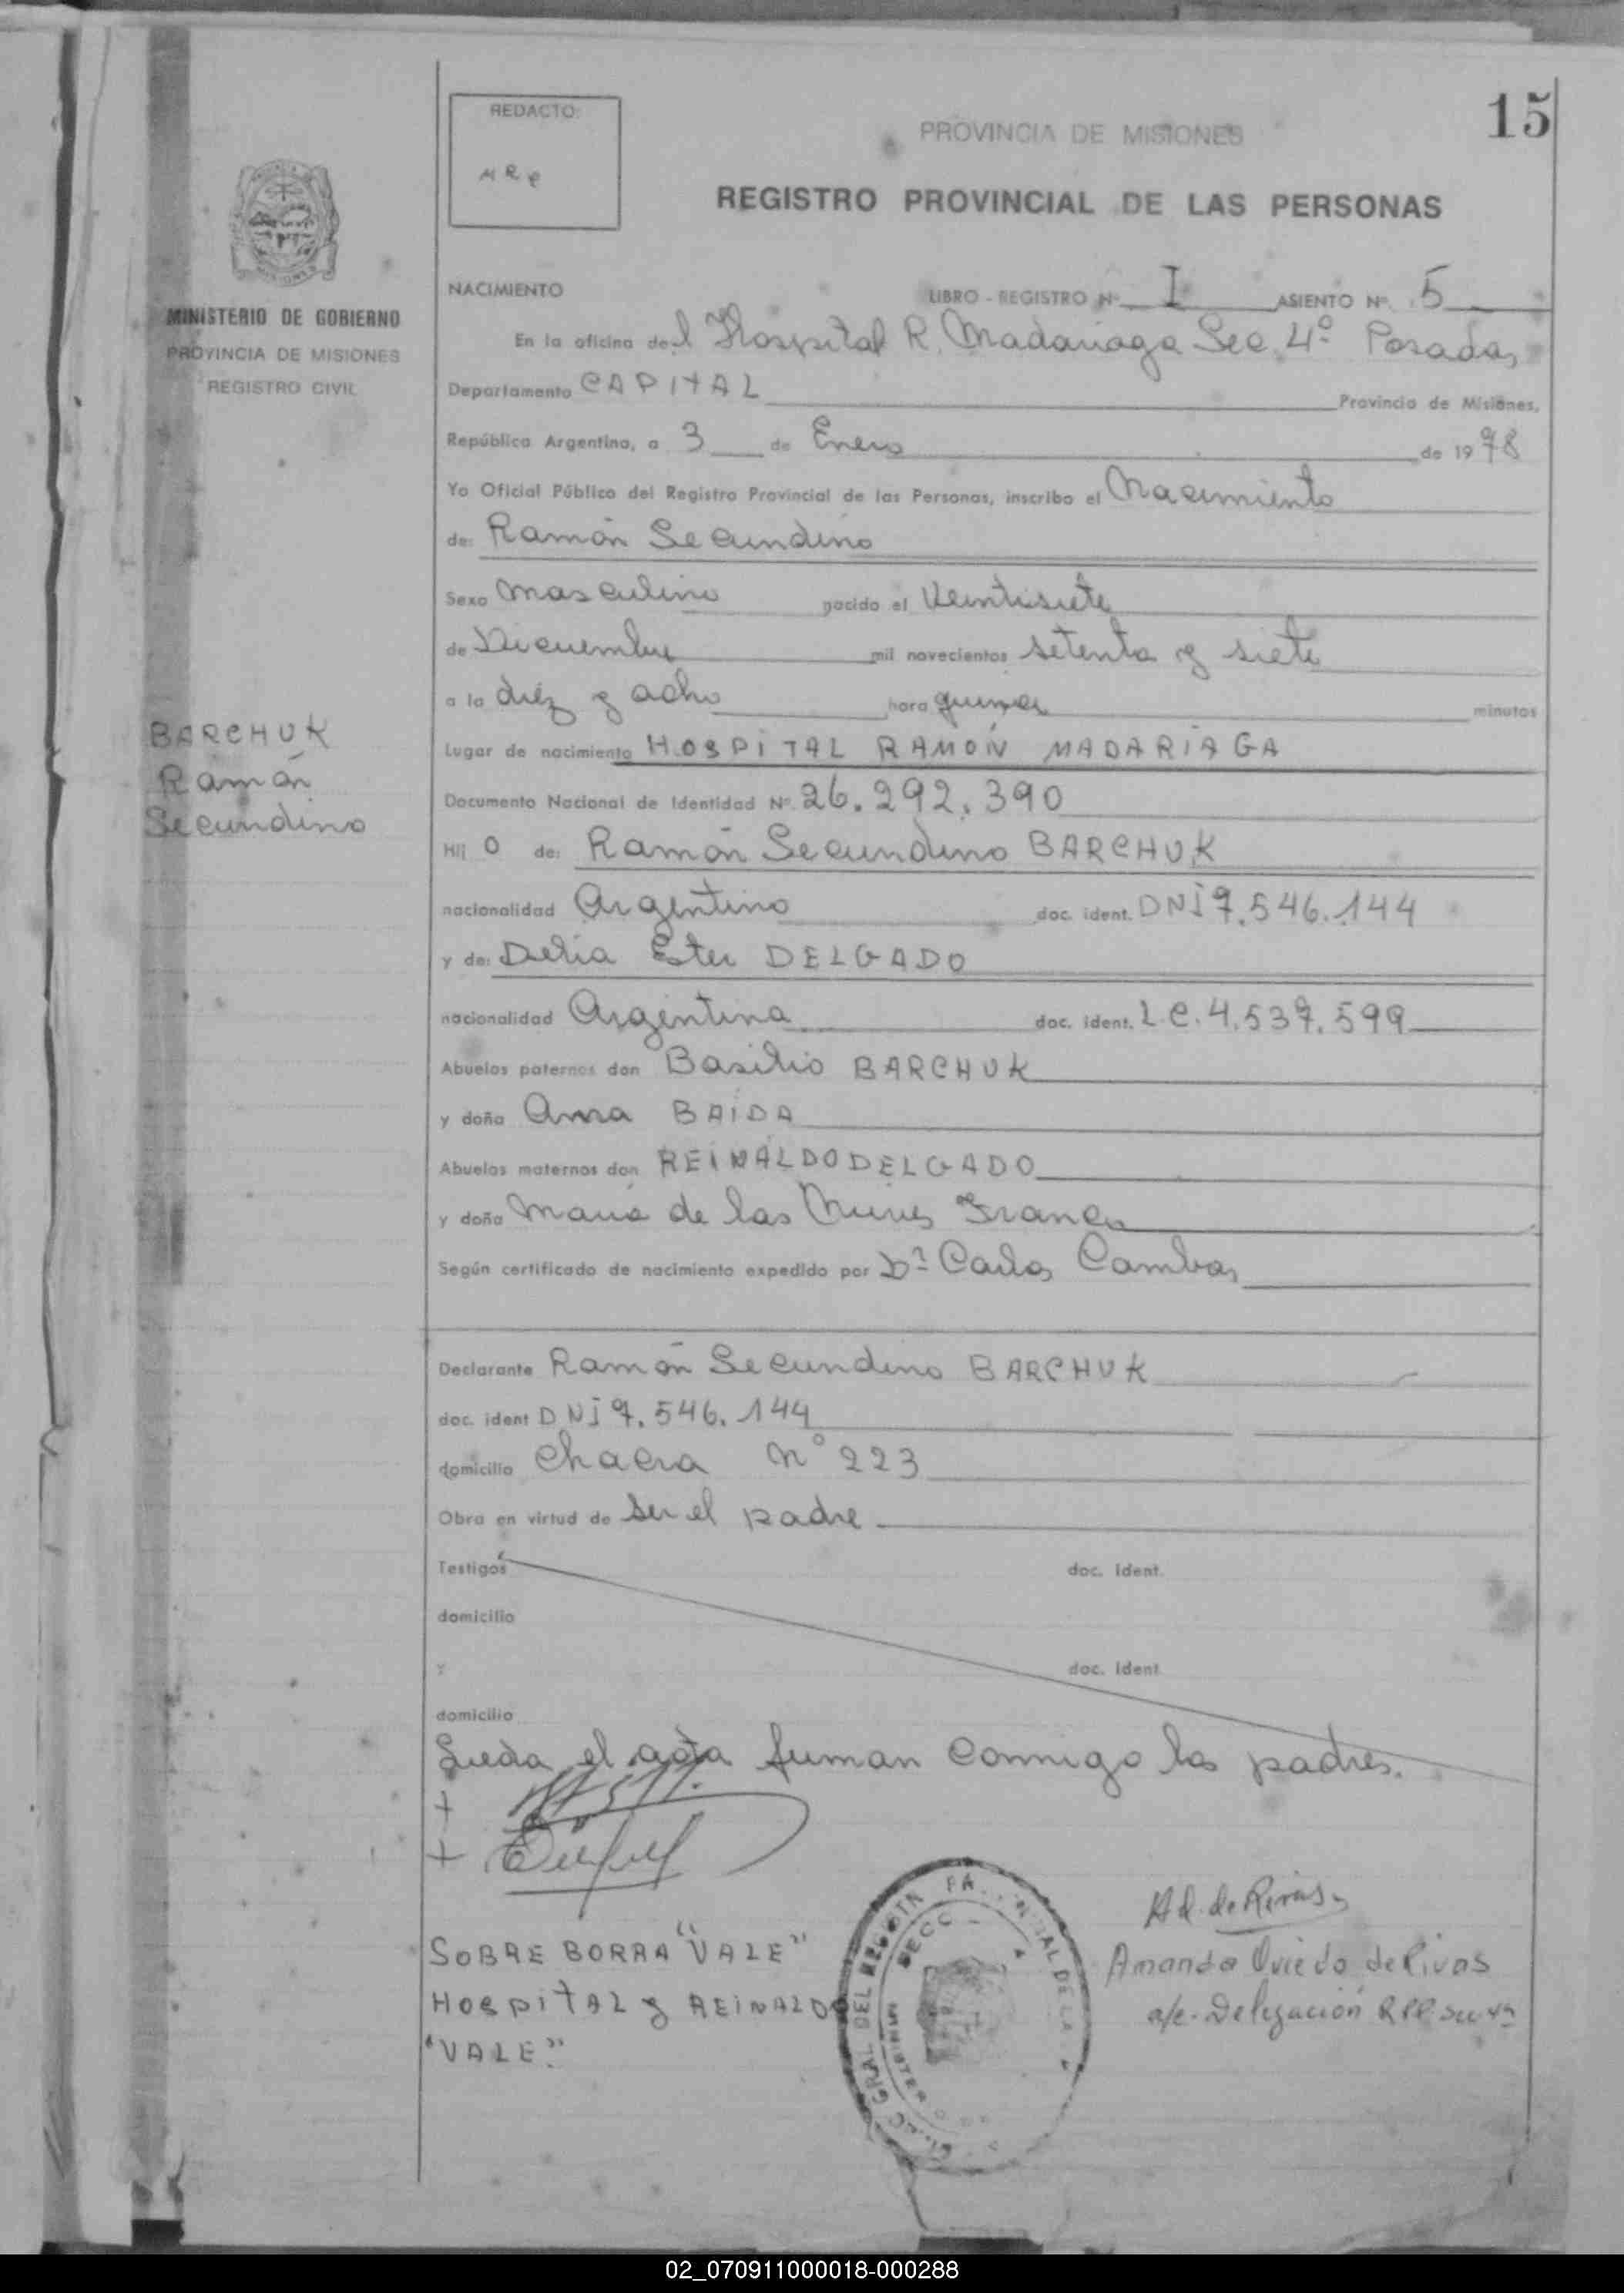 15
REDACTO:
MRR
PROVINCIA DE MISIONES
REGISTRO PROVINCIAL DE LAS PERSONAS
MINISTERIO DE GOBIERNO
PROVINCIA DE MISIONES
REGISTRO CIVIL
NACIMIENTO LIBRO - REGISTRO Nº I ASIENTO Nº 5
En la oficina del Hospital R. Madariaga Sec. 4º Posadas
Departamento CAPITAL Provincia de Misiones,
República Argentina, a 3 de Enero de 1978
Yo Oficial Público del Registro Provincial de las Personas, inscribo el Nacimiento
de: Ramón Secundino
Sexo Masculino nacido el Veintisiete
de Diciembre mil novecientos setenta y siete
a la diez y ocho hora quince minutos
BARCHUK
Ramón
Secundino
Lugar de nacimiento HOSPITAL RAMÓN MADARIAGA
Documento Nacional de Identidad Nº 26.292.390
Hij o de: Ramón Secundino BARCHUK
nacionalidad Argentino doc. ident. DNI 7.546.144
y de: Delia Ester DELGADO
nacionalidad Argentina doc. ident. L.C. 4.537.599
Abuelos paternos don Basilio BARCHUK
y doña Anna BAIDA
Abuelos maternos don REINALDO DELGADO
y doña Maria de las Nieves Franco
Según certificado de nacimiento expedido por Dr Carlos Cambas
Declarante Ramón Secundino BARCHUK
doc. ident DNI 7.546.144
domicilio Chacra Nº 223
Obra en virtud de ser el padre
Testigos doc. ident.
domicilio
Y doc. ident
domicilio
Leída el acta firman conmigo los padres.
+
+
Ad. de Rivas
SOBRE BORRA "VALE"
HOSPITAL y REINALDO
"VALE"
Amanda Oviedo de Rivas
a/c. Delegación R.P.P. Sec 4ª
GRAL DEL
SECC
02_070911000018-000288